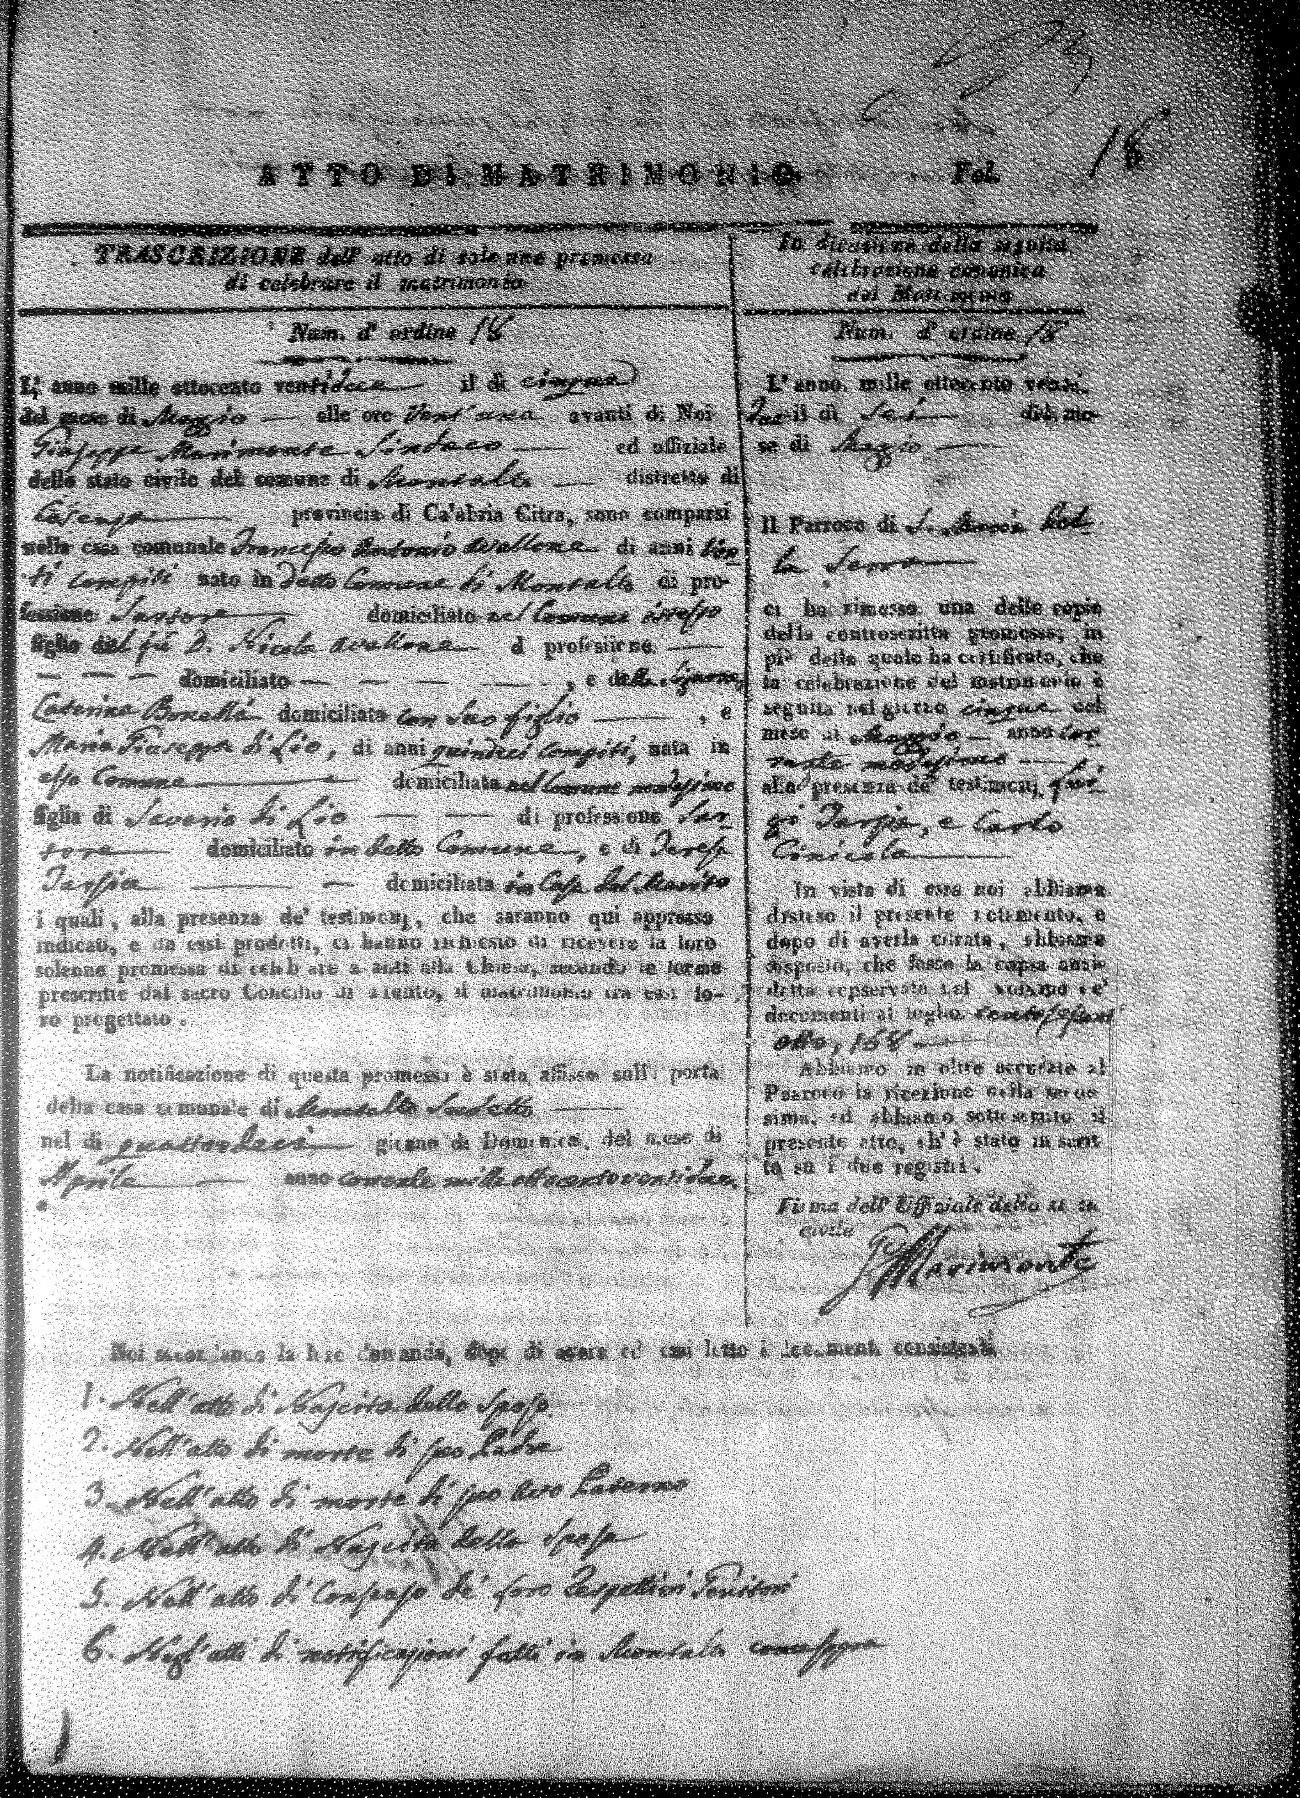 ATTO DI MATRIMONIO Fol. 18
TRASCRIZIONE dell' atto di solenne promessa
di celebrare il matrimonio
Num. d' ordine 18
L' anno mille ottocento ventidue il dì cinque
del mese di Maggio alle ore Vent'una avanti di Noi
Giuseppe Marimonte Sindaco ed offiziale
dello stato civile del comune di Montalto distretto di
Cosenza provincia di Calabria Citra, sono comparsi
nella casa comunale Francesco Antonio Avallone di anni ven-
ti compiti nato in detto Comune di Montalto di pro-
fessione Sartore domiciliato nel Comune istesso
figlio del fù D. Nicola Avallone di professione
domiciliato , e della Signora
Caterina domiciliata con suo figlio , e
Maria Giuseppa di Lio, di anni quindici compiti, nata in
esso Comune domiciliata nel Comune medesimo
figlia di Saverio di Lio di professione Sar-
tore domiciliato in detto Comune, e di Teresa
Tarsia domiciliata in Casa del Marito
i quali, alla presenza de' testimonj, che saranno qui appresso
indicati, e da essi prodotti, ci hanno richiesto di ricevere la loro
solenne promessa di celebrare avanti alla Chiesa, secondo le forme
prescritte dal sacro Concilio di Trento, il matrimonio tra essi lo-
ro progettato.
La notificazione di questa promessa è stata affissa sulla porta
della casa comunale di Montalto sudetto
nel dì quattordeci giorno di Domenica del mese di
Aprile anno corrente mille ottocento ventidue.
Indicazione della seguita
celebrazione canonica
del Matrimonio
Num. d' ordine 18
L' anno mille ottocento venti-
due il dì Sei del me-
se di Maggio
Il Parroco di S. Maria del-
la Serra
ci ha rimesso una delle copie
della controscritta promessa, in
piè della quale ha certificato, che
la celebrazione del matrimonio è
seguita nel giorno cinque del
mese di Maggio anno cor-
rente medesimo
alla presenza de' testimonj Lui-
gi Tarsia, e Carlo
Cinicola
In vista di essa noi abbiamo
disteso il presente notamento, e
dopo di averla cifrata, abbiamo
disposto, che fosse la copia anzi-
detta conservata nel volume de'
documenti al foglio centosessant'
otto, 168
Abbiamo in oltre accusato al
Parroco la ricezione della mede-
sima, ed abbiamo sottoscritto il
presente atto, ch' è stato inscrit-
to su i due registri.
Firma dell' Uffiziale dello stato
civile
G. Marimonte
Noi secondando la loro domanda, dopo di avere ad essi letto i documenti consistenti
1. Nell'atto di Nascita dello sposo
2. Nell'atto di morte di suo Padre
3. Nell'atto di morte di suo Avo Paterno
4. Nell'atto di Nascita della sposa
5. Nell'atto di Consenso de' loro respettivi Genitori
6. Negl'atti di notificazioni fatti in Montalto